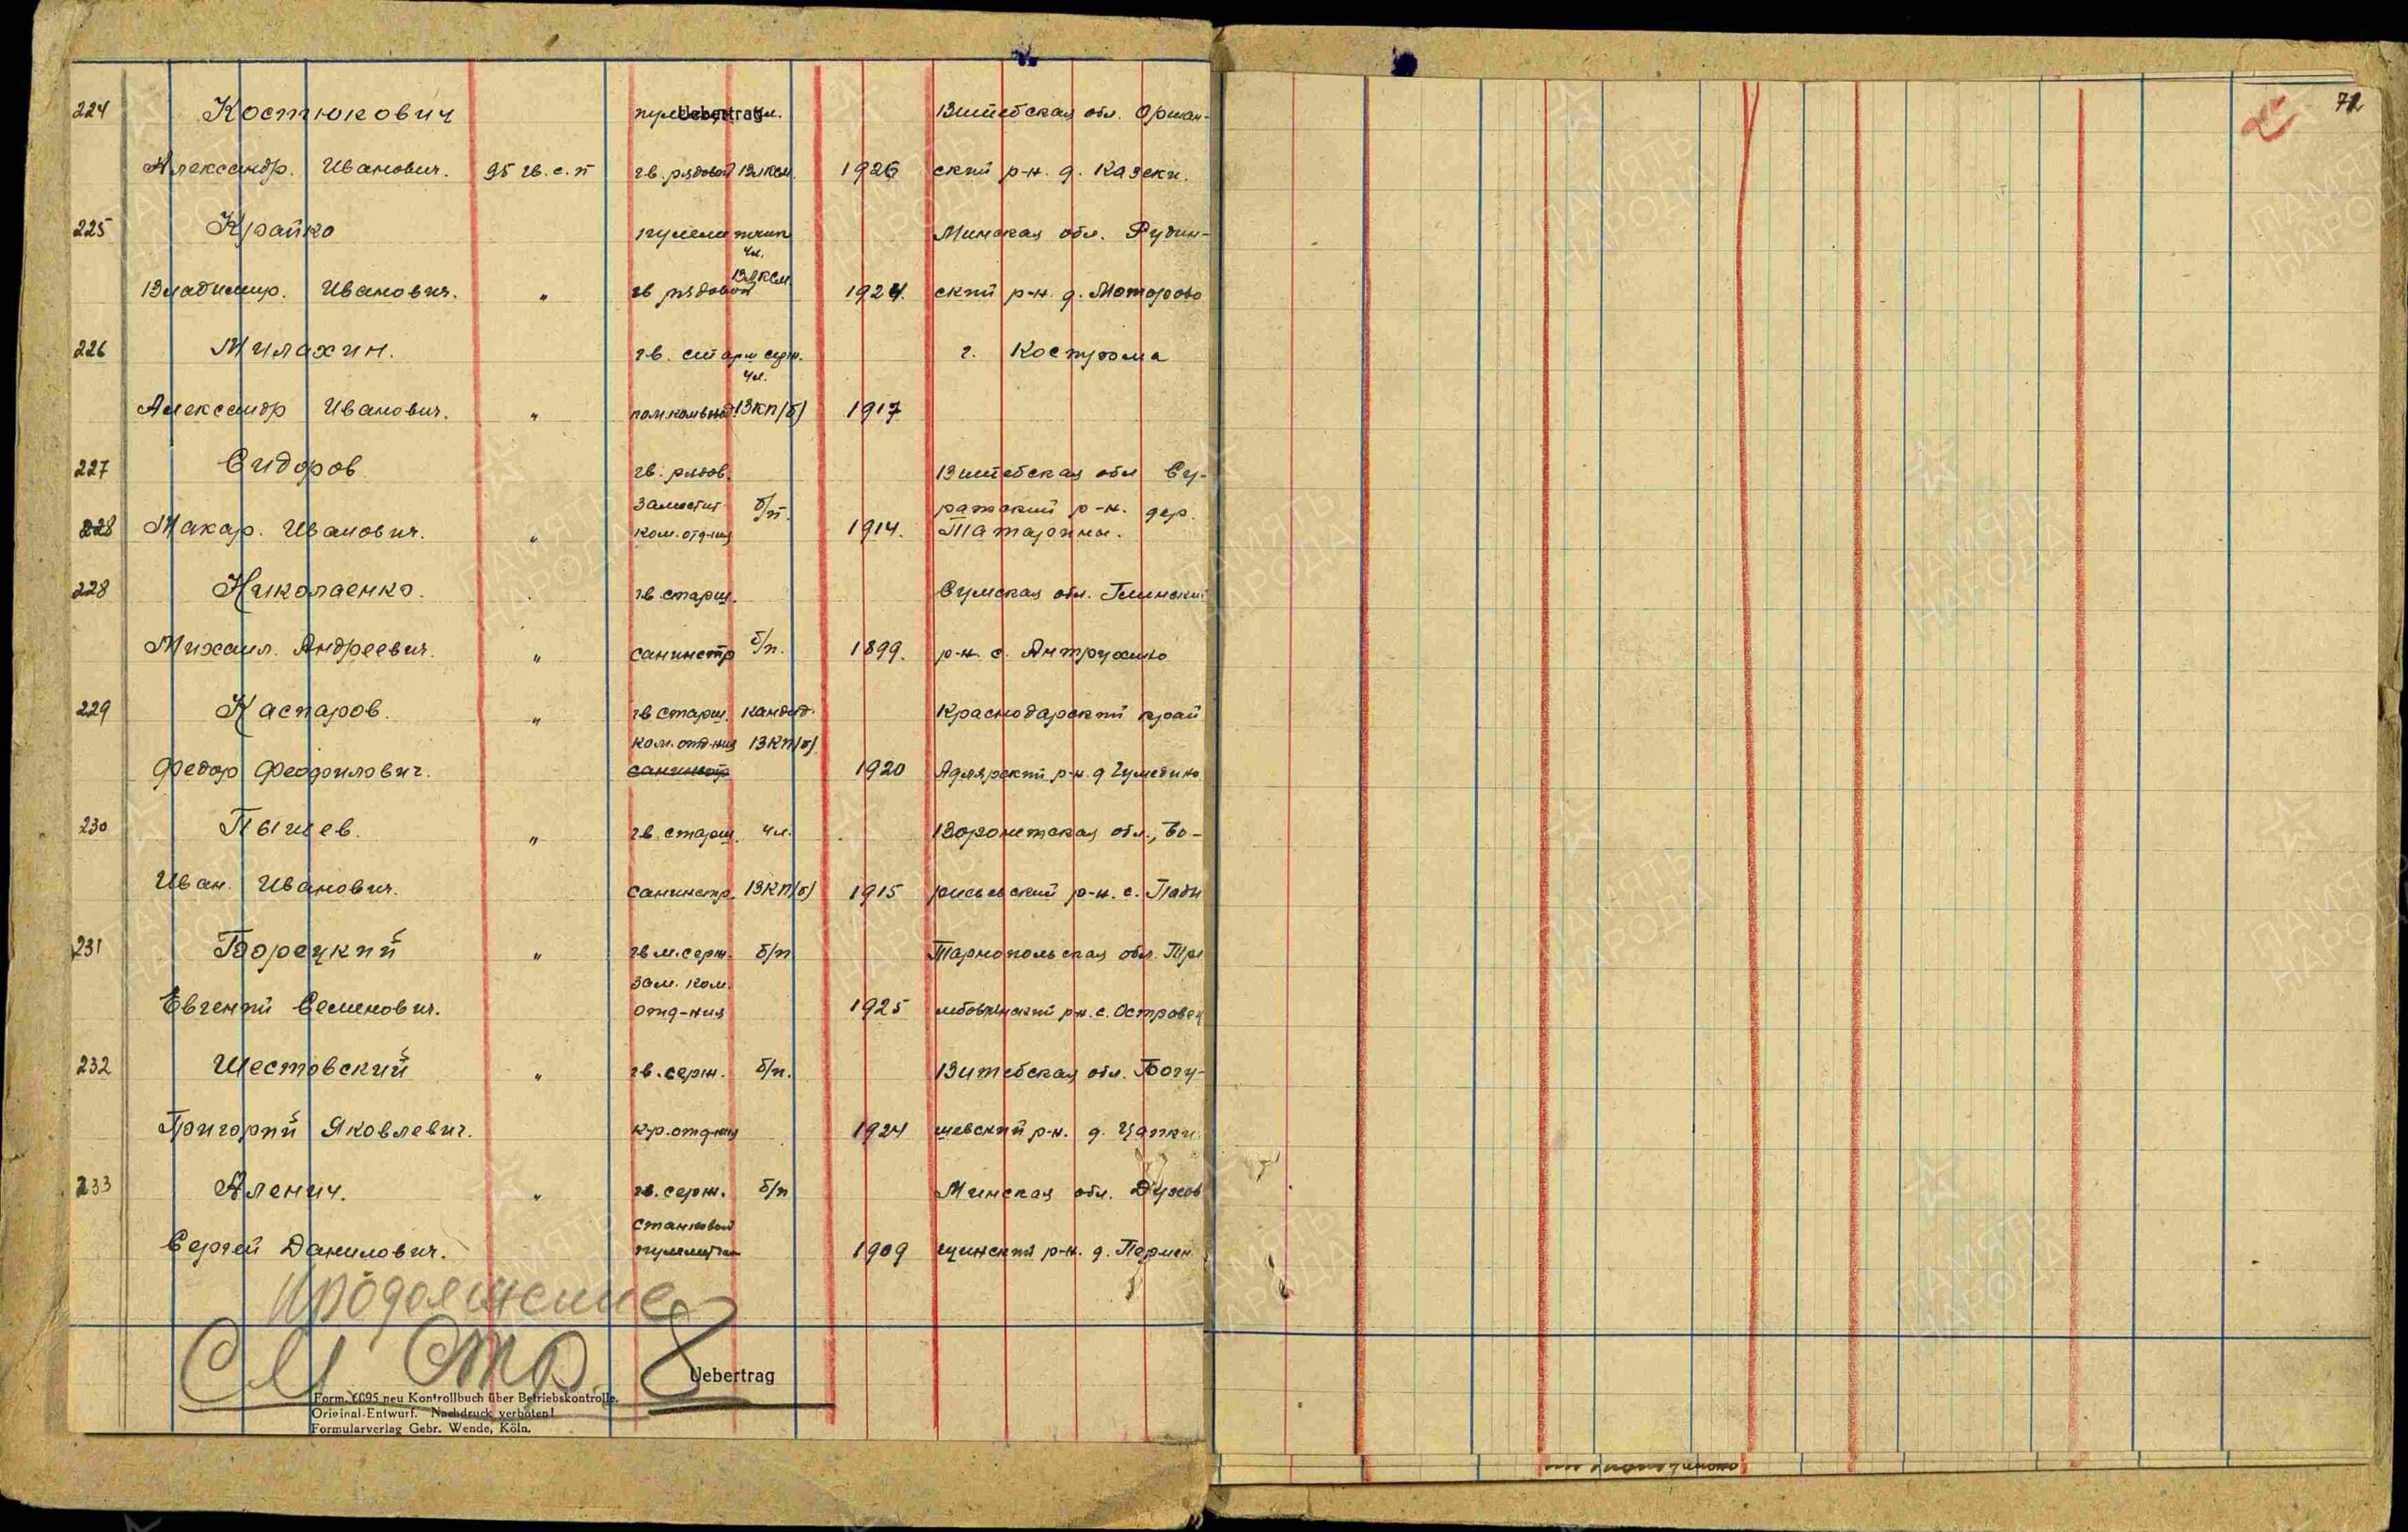 224 Костюкович Uebertrag Витебская обл. Оршан- 71
Александр. Иванович. 95 гв. с. п гв. рядовой ВЛКСМ 1926 ский р-н. д. Казеки.
225 Крайко пулеметчик Минская обл. Рудин-
чл.
ВЛКСМ
Владимир. Иванович. " гв рядовой 1924. ский р-н. д. Моторово
226 Милахин. гв. старш серж. г. Кострома
чл.
Александр Иванович. " пом. ком взвод. ВКП/б/ 1917
227 Сидоров гв. рядов. Витебская обл Су-
заместит б/п. ражский р-н. дер.
228 Макар. Иванович. " ком. отд-ния 1914. Татарины.
228 Николаенко. гв. старш. Сумская обл. Глинский
Михаил. Андреевич. " санинстр б/п. 1899. р-н. с.
229 Каспаров. " гв старш. кандид. Краснодарский край
ком. отд-ния ВКП/б/
Федор Феофилович. санинстр 1920 Адлярский р-н. д
230 Пышев. " гв. старш. чл. Воронежская обл., Бо-
Иван. Иванович. санинстр. ВКП/б/ 1915 рисьевский р-н. с. Пади
231 Борецкий " гв м. серж. б/п Тарнопольская обл. Тре
зам. ком.
Евгений Семенович. отд-ния 1925 мбовлянский р-н. с. Островец
232 Шестовский " гв. серж. б/п. Витебская обл. Богу-
Григорий Яковлевич. к-р. отд-ния 1924 шевский р-н. д. Цапки.
233 Аленич. " гв. серж. б/п Минская обл. Духов
станковый
Сергей Данилович. пулеметчик 1909 щинский р-н. д.
продолжение
См стр. 8
Uebertrag
Form. 1095 neu Kontrollbuch über Betriebskontrolle.
Original-Entwurf. Nachdruck verboten!
Formularverlag Gebr. Wende, Köln.
ПАМЯТЬ НАРОДА